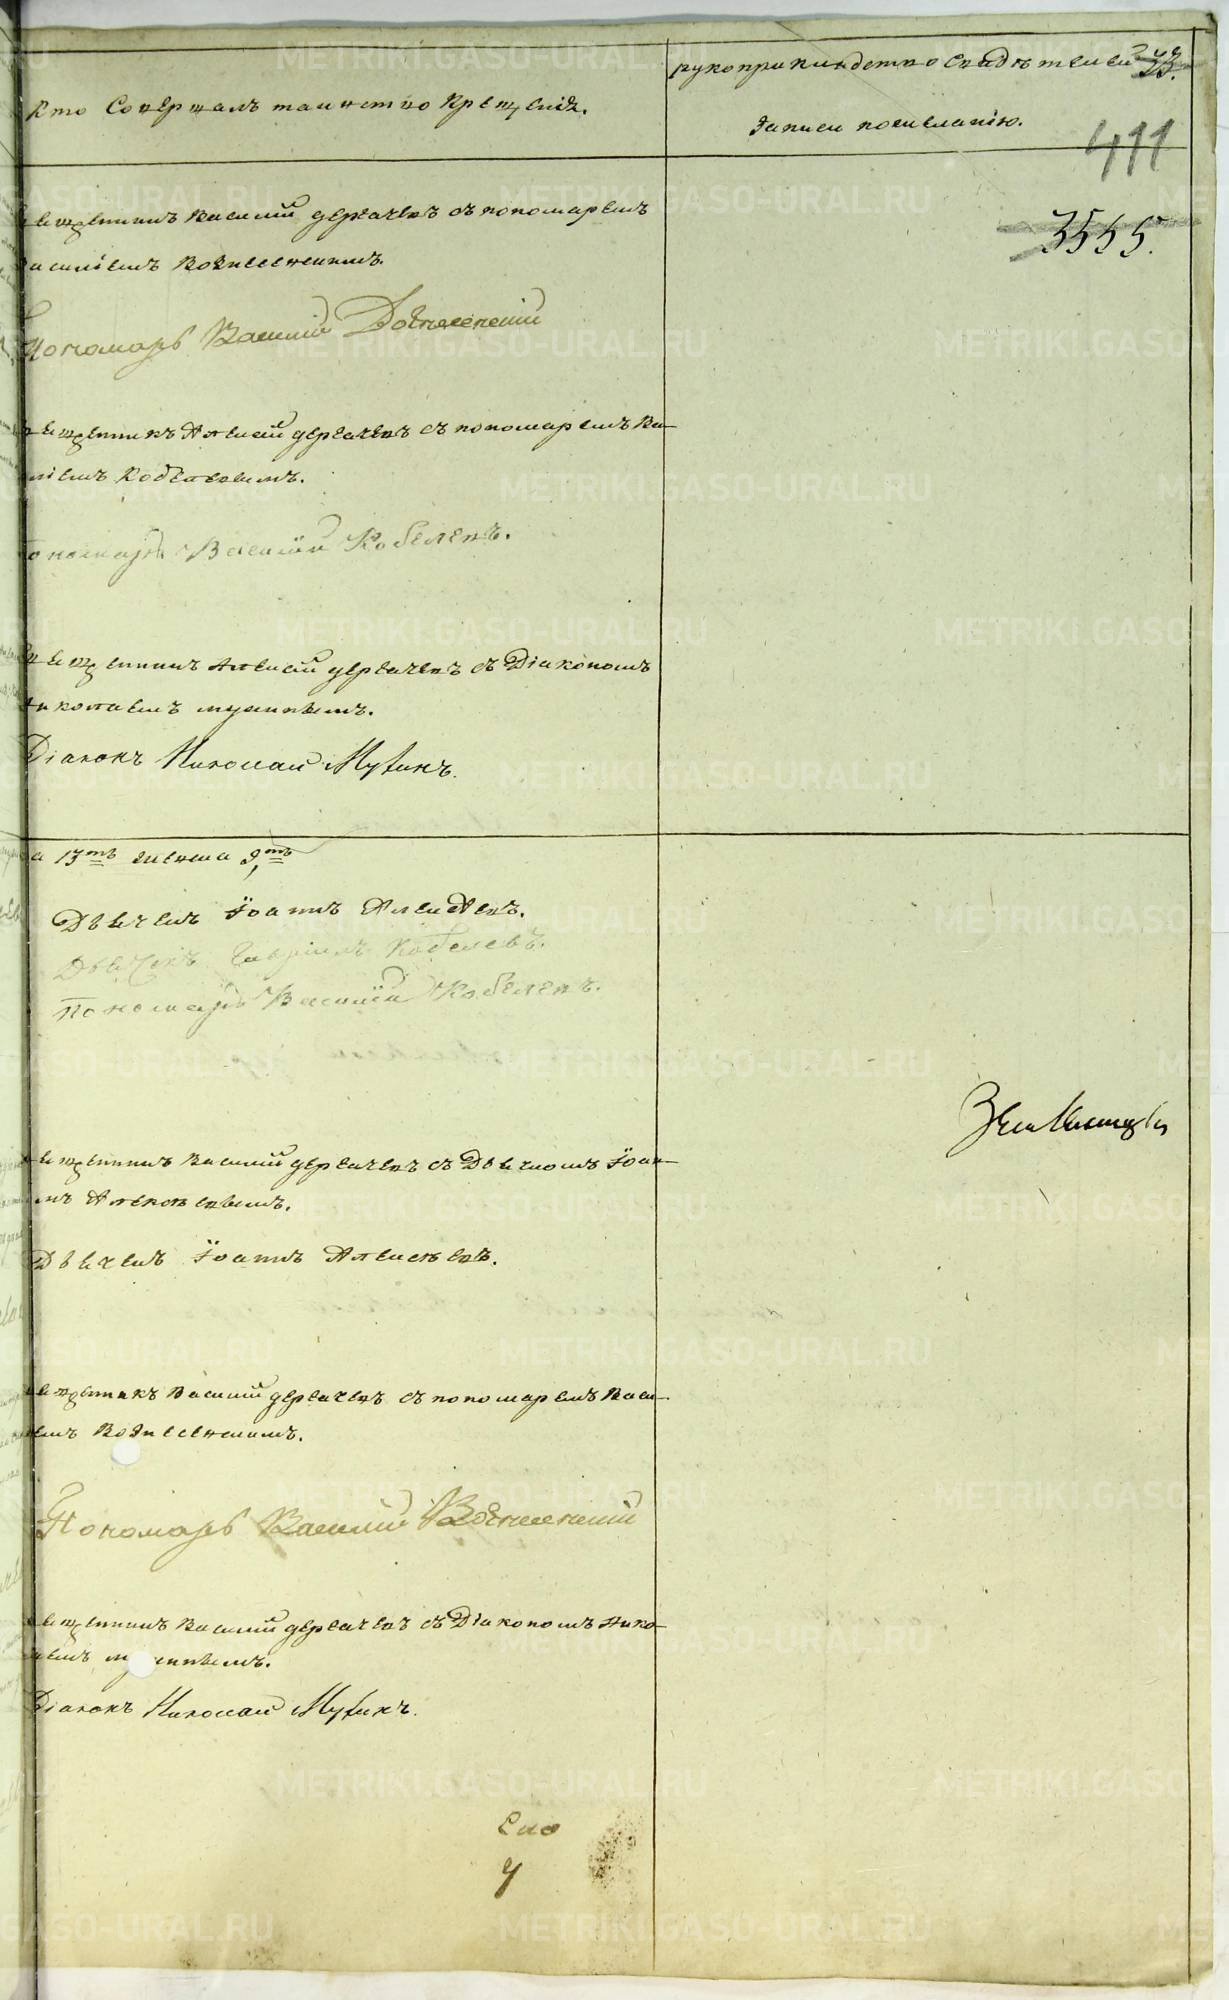 Кто Совершалъ таинство Крещенія.
рукоприкладство Свидѣтелей
записи по желанію.
411
3555.
Священникъ Василій Дергачевъ съ пономаремъ
Василіемъ Вознесенскимъ.
Пономарь Василій Вознесенскій
Священникъ Алексій Дергачевъ съ пономаремъ Ва-
силіемъ Кобелевымъ.
Пономарь Василій Кобелевъ.
Священникъ Алексій Дергачевъ съ Діакономъ
Николаемъ
Діаконъ Николай
а 13ть женска 9ть
Дьячекъ Іоаннъ Алексѣевъ.
Дьячекъ Гавріилъ Кобелевъ.
Пономарь Василій Кобелевъ.
Священникъ Василій Дергачевъ съ Дьячкомъ Іоан-
мъ Алексѣевымъ.
Дьячекъ Іоаннъ Алексѣевъ.
Священникъ Василій Дергачевъ съ пономаремъ Васи-
емъ Вознесенскимъ.
Пономарь Василій Вознесенскій
Священникъ Василій Дергачевъ съ Діакономъ Нико-
лаемъ
Діаконъ Николай
METRIKI.GASO-URAL.RU